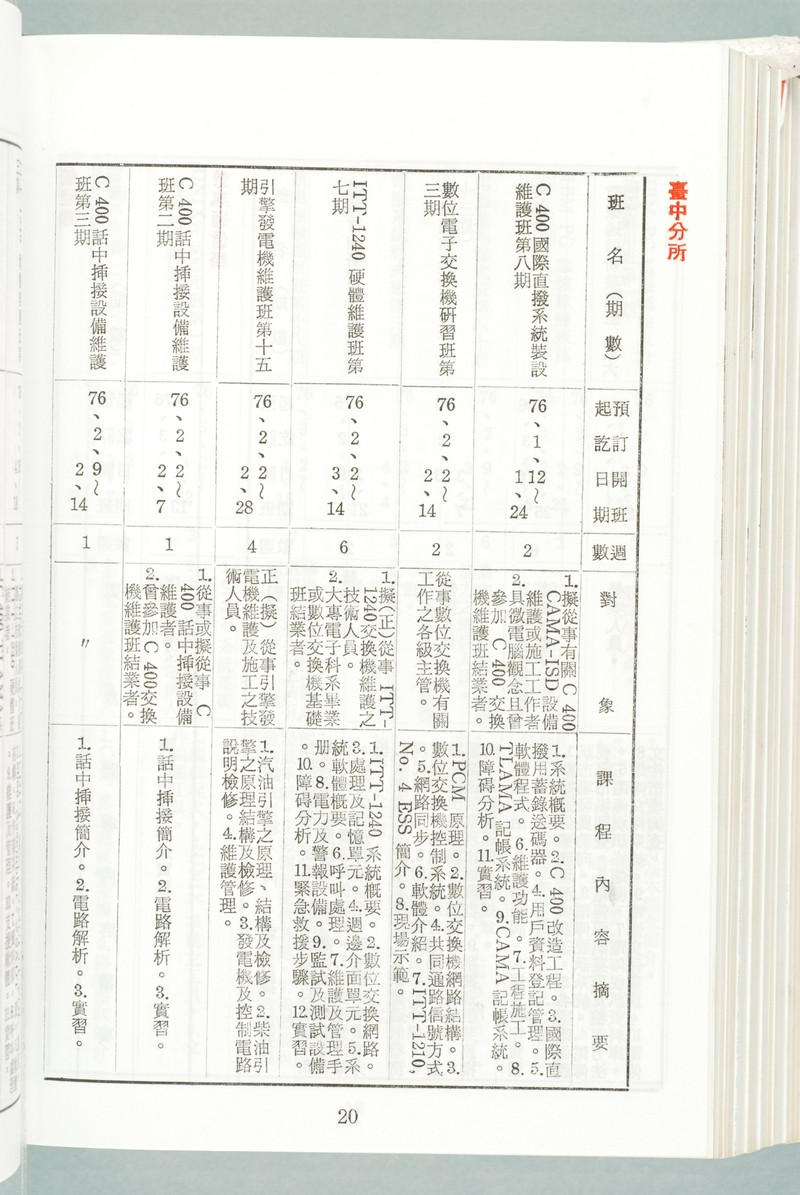 臺中分所
班名（期數）
預訂開班
起訖日期
週數
對象
課程內容摘要
C 400 國際直撥系統裝設
維護班第八期
76、1、12～
1、24
2
1.擬從事有關 C 400
CAMA-ISD 設備
維護或施工工作者
2.具微電腦觀念且曾
參加 C 400 交換
機維護班結業者。
1.系統概要。2.C 400 改造工程。3.國際直
撥用蓄錄送碼器。4.用戶資料登記管理。5.
軟體程式。6.維護功能。7.工程施工。8.
TLAMA 記帳系統。9.CAMA 記帳系統。
10.障碍分析。11.實習。
數位電子交換機研習班第
三期
76、2、2～
2、14
2
從事數位交換機有關
工作之各級主管。
1.PCM 原理。2.數位交換機網路結構。3.
數位交換機控制系統。4.共同通路信號方式
。5.網路同步。6.軟體介紹。7.ITT-1210,
No. 4 ESS 簡介。8.現場示範。
ITT-1240 硬體維護班第
七期
76、2、2～
3、14
6
1.擬(正)從事 ITT-
1240交換機維護之
技術人員。
2.大專電子科系畢業
或數位交換機基礎
班結業者。
1.ITT-1240 系統概要。2.數位交換網路。
3.處理及記憶單元。4.週邊介面單元。5.系
統軟體概要。6.呼叫處理。7.維護及管理手
册。8.電力及警報設備。9.監試及測試設備
。10.障碍分析。11.緊急救援步驟。12.實習。
引擎發電機維護班第十五
期
76、2、2～
2、28
4
正（擬）從事引擎發
電機維護及施工之技
術人員。
1.汽油引擎之原理、結構及檢修。2.柴油引
擎之原理結構及檢修。3.發電機及控制電路
說明檢修。4.維護管理。
C 400 話中挿接設備維護
班第二期
76、2、2～
2、7
1
1.從事或擬從事 C
400 話中挿接設備
維護者。
2.曾參加 C 400交換
機維護班結業者。
1.話中挿接簡介。2.電路解析。3.實習。
C 400 話中挿接設備維護
班第三期
76、2、9～
2、14
1
〃
1.話中挿接簡介。2.電路解析。3.實習。
20